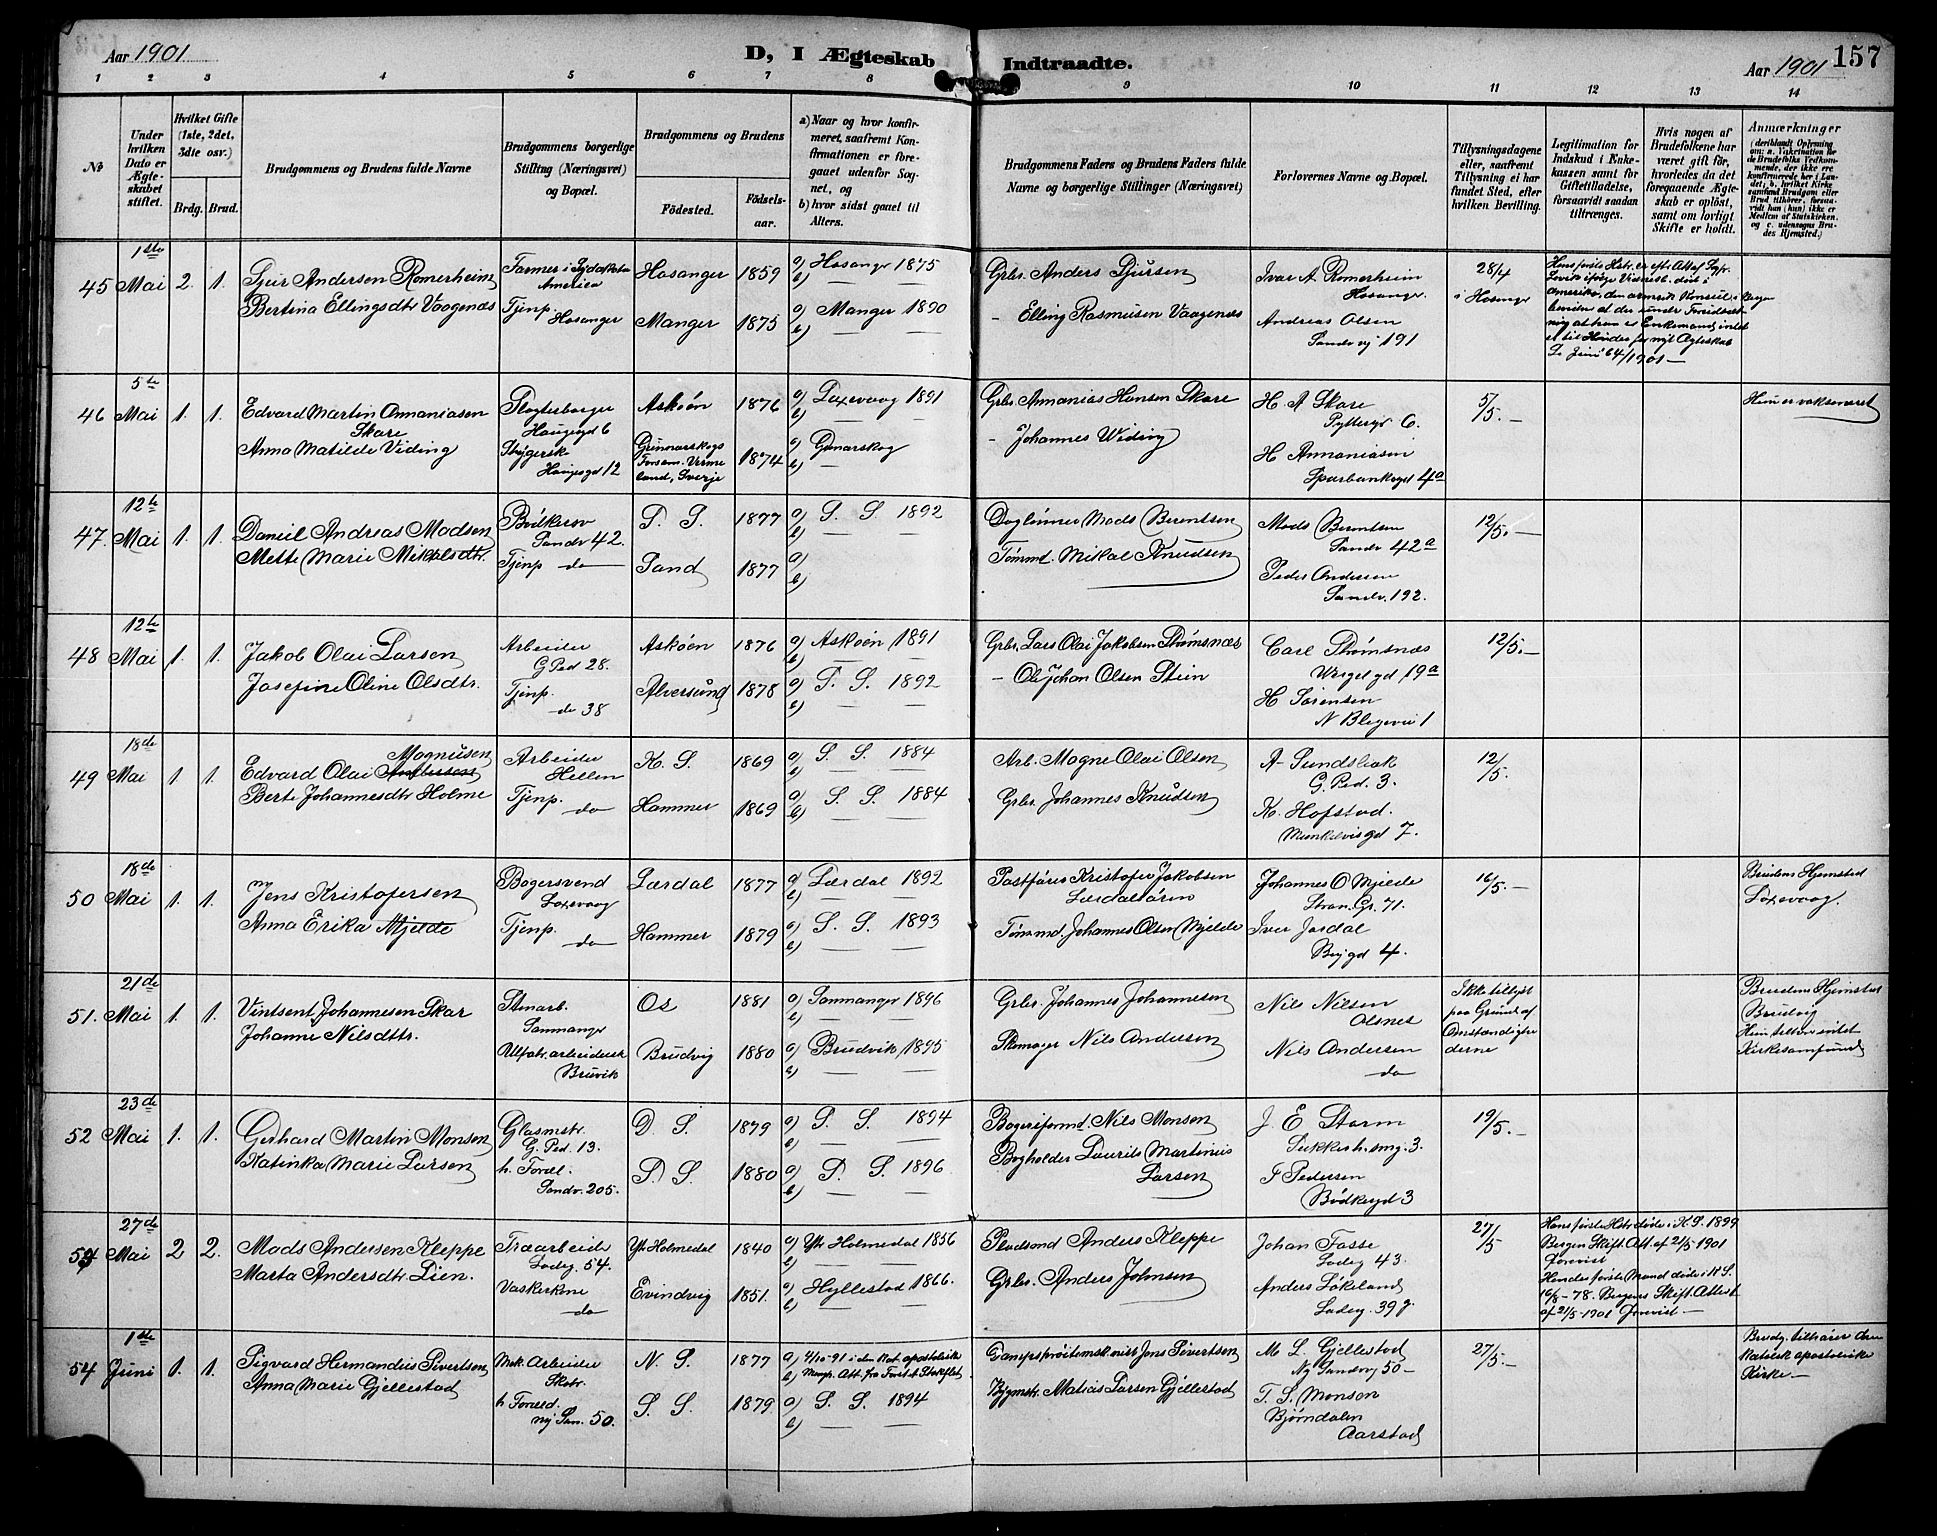 Aar 1901
D, I Ægteskab Indtraadte.
Aar 1901
157
1 2 3 4 5 6 7 8 9 10 11 12 13 14
No
Under hvilken Dato er Ægteskabet stiftet.
Hvilket Gifte (1ste, 2det, 3die osv.)
Brdg. Brud.
Brudgommens og Brudens fulde Navne
Brudgommens borgerlige Stilling (Næringsvei) og Bopæl.
Brudgommens og Brudens
Fødested.
Fødselsaar.
a) Naar og hvor konfirmeret, saafremt Konfirmationen er foregaaet udenfor Sognet, og
b) hvor sidst gaaet til Alters.
Brudgommens Faders og Brudens Faders fulde Navne og borgerlige Stillinger (Næringsvei)
Forlovernes Navne og Bopæl.
Tillysningsdagene eller, saafremt Tillysning ei har fundet Sted, efter hvilken Bevilling.
Legitimation for Indskud i Enkekassen samt for Giftetilladelse, forsaavidt saadan tiltrænges.
Hvis nogen af Brudefolkene har været gift før, hvorledes da det foregaaende Ægteskab er opløst, samt om lovligt Skifte er holdt.
Anmærkninger
45 1ste Mai 2. 1.
Sjur Andersen Romerheim
Farmer i Sydakota America
Hosanger 1859
a) Hosangr 1875
b) —
Grbr. Anders Sjursen
Ivar A Romerheim
Hosanger.
28/4 i Hosangr
Bertina Ellingsdtr Vaagenæs
Tjenp. Hosanger
Manger 1875
a) Manger 1890
b) —
- Elling Rasmusen Vaagenæs
Andreas Olsen
Sandvg 191
46 5te Mai 1. 1.
Edvard Martin Annaniasen Skare
Slagterborger
Haugegd 6
Askøen 1876
a) Laxevaag 1891
b) —
Grbr. Annanias Hansen Skare
H. A Skare
Pyttergr 6.
5/5. —
Anna Matilde Viding
Strygersk
Haugegd 12
Gunnarskogs Forsam. Vermeland, Sverje
1874
a) Gunarskog
b) —
- Johannes Widing
H Annaniasen
Sparbankgd 4a
47. 12te Mai 1. 1.
Daniel Andreas Madsen
Bødkersv
Sandv 42.
D. S. 1877
a) S. S. 1892
b) —
Daglønner Mads Berentsen
Mads Berentsen
Sandv 42a
12/5. —
Mette Marie Mikalsdtr.
Tjenp do
Sand 1877
a)
b)
Tømmd. Mikal Knudsen
Peder Andersen
Sandv. 192.
48 12te Mai 1. 1.
Jakob Olai Larsen
Arbeider
G Ped 28.
Askøen 1876
a) Askøen 1891
b) —
Grbr. Lars Olai Jakobsen Strømsnæs
Carl Strømsnæs
Wergel gd 19a
12/5. —
Josefine Oline Olsdtr.
Tjenp. do 38
Alversund 1878
a) S. S. 1892
b) —
- Ole Johan Olsen Stein
H Sørensen
N Blegevei 1
49 18de Mai 1 1.
Edvard Olai Magnusen
Arbeider
Hellen
K. S. 1869
a) S. S. 1884
b) —
Arb. Magne Olai Olsen
A Sundsbak
G. Ped. 3.
12/5.
Berte Johannesdtr Holme
Tjenp. do
Hammer 1869
a) S. S. 1884
b) —
Grbr. Johannes Knudsen
K. Hofstad.
Munkelvsgd 7.
50 18de Mai 1. 1.
Jens Kristofersen
Bogersvend
Laxevaag
Lærdal 1877
a) Lærdal 1892
b) —
Postfører Kristofer Jakobsen
Lærdalsøren
Johannes O Mjelde
Stran. Gr. 71.
16/5. —
Brudens Hjemsted
Laxevaag.
Anna Erika Mjelde
Tjenp. do
Hammer 1879
a) S. S. 1893
b) —
Tømmd. Johannes Olsen Mjelde
Iver Jordal
Bygd 4.
51. 21de Mai 1. 1.
Vintsent Johannesen Skar
Stenarb.
Sammanger
Os 1881
a) Sammanger 1896
b) —
Grbr. Johannes Johannesen
Nils Nilsen
Olsnes
Ikke tillyst paa Grund af Omstændighederne
Brudens Hjemsted
Brudvig
Hun tilhører intet
Kirkesamfund
Johanne Nilsdtr.
Uldfabr. arbeiderske
Bruvik
Brudvig 1880
a) Brudvik 1895
b) —
Skomager Nils Andersen
Nils Andersen
do
52 23de Mai 1. 1.
Gerhard Martin Monsen
Glasmstr.
G. Ped. 13.
D. S. 1879
a) S. S. 1894
b) —
Bogeriformd. Nils Monsen
J. E Storm
Sukkerh. smg. 3.
19/5. —
Katinka Marie Larsen
h. Foræl.
Sandv. 205.
D. S. 1880
a) D. S. 1896
b) —
Bogholder Laurits Martinus Larsen
F Pedersen
Bødkergd 3
27de Mai 2 2.
Mads Andersen Kleppe
Træarbeider
Ladeg. 54.
Yt Holmedal 1840
a) Ytr Holmedal 1856
b) —
Pladsmd Anders Kleppe
Johan Fasse
Ladeg 43.
27/5
Hans første Hstr døde i K. S. 1899
Bergen Skift. Att. af 21/5 1901
forevist
Hendes første Mand døde i N S.
16/8 - 78. Bergens Skift. Attest
af 21/5 1901 forevist —
Marta Andersdtr Lien.
Vaskerkone do
Evindvig 1851.
a) Hyllestad 1866.
b) —
Grbr. Anders Johnsen
Anders Løkeland
Ladeg. 39 g.
54 1ste Juni 1. 1.
Sigvard Hermandius Sivertsen
Mek. Arbeider
Skotr.
N. S. 1877
a) 4/10-91 i den kat. apostoliske
b) Mengh. Att. fra Forst. Stokflet.
Jens Sivertsen
M. L. Gjellestad
Ny Sandvg 50 —
27/5. —
Brudg. tilhører den
Katolsk apostoliske
Kirke —
Anna Marie Gjellestad
h Foræld.
ny San. 50.
S. S. 1879.
a) S. S. 1894
b) —
Bygmstr. Matias Larsen Gjellestad
T. S. Monson
Bjørndalen
Aarstad